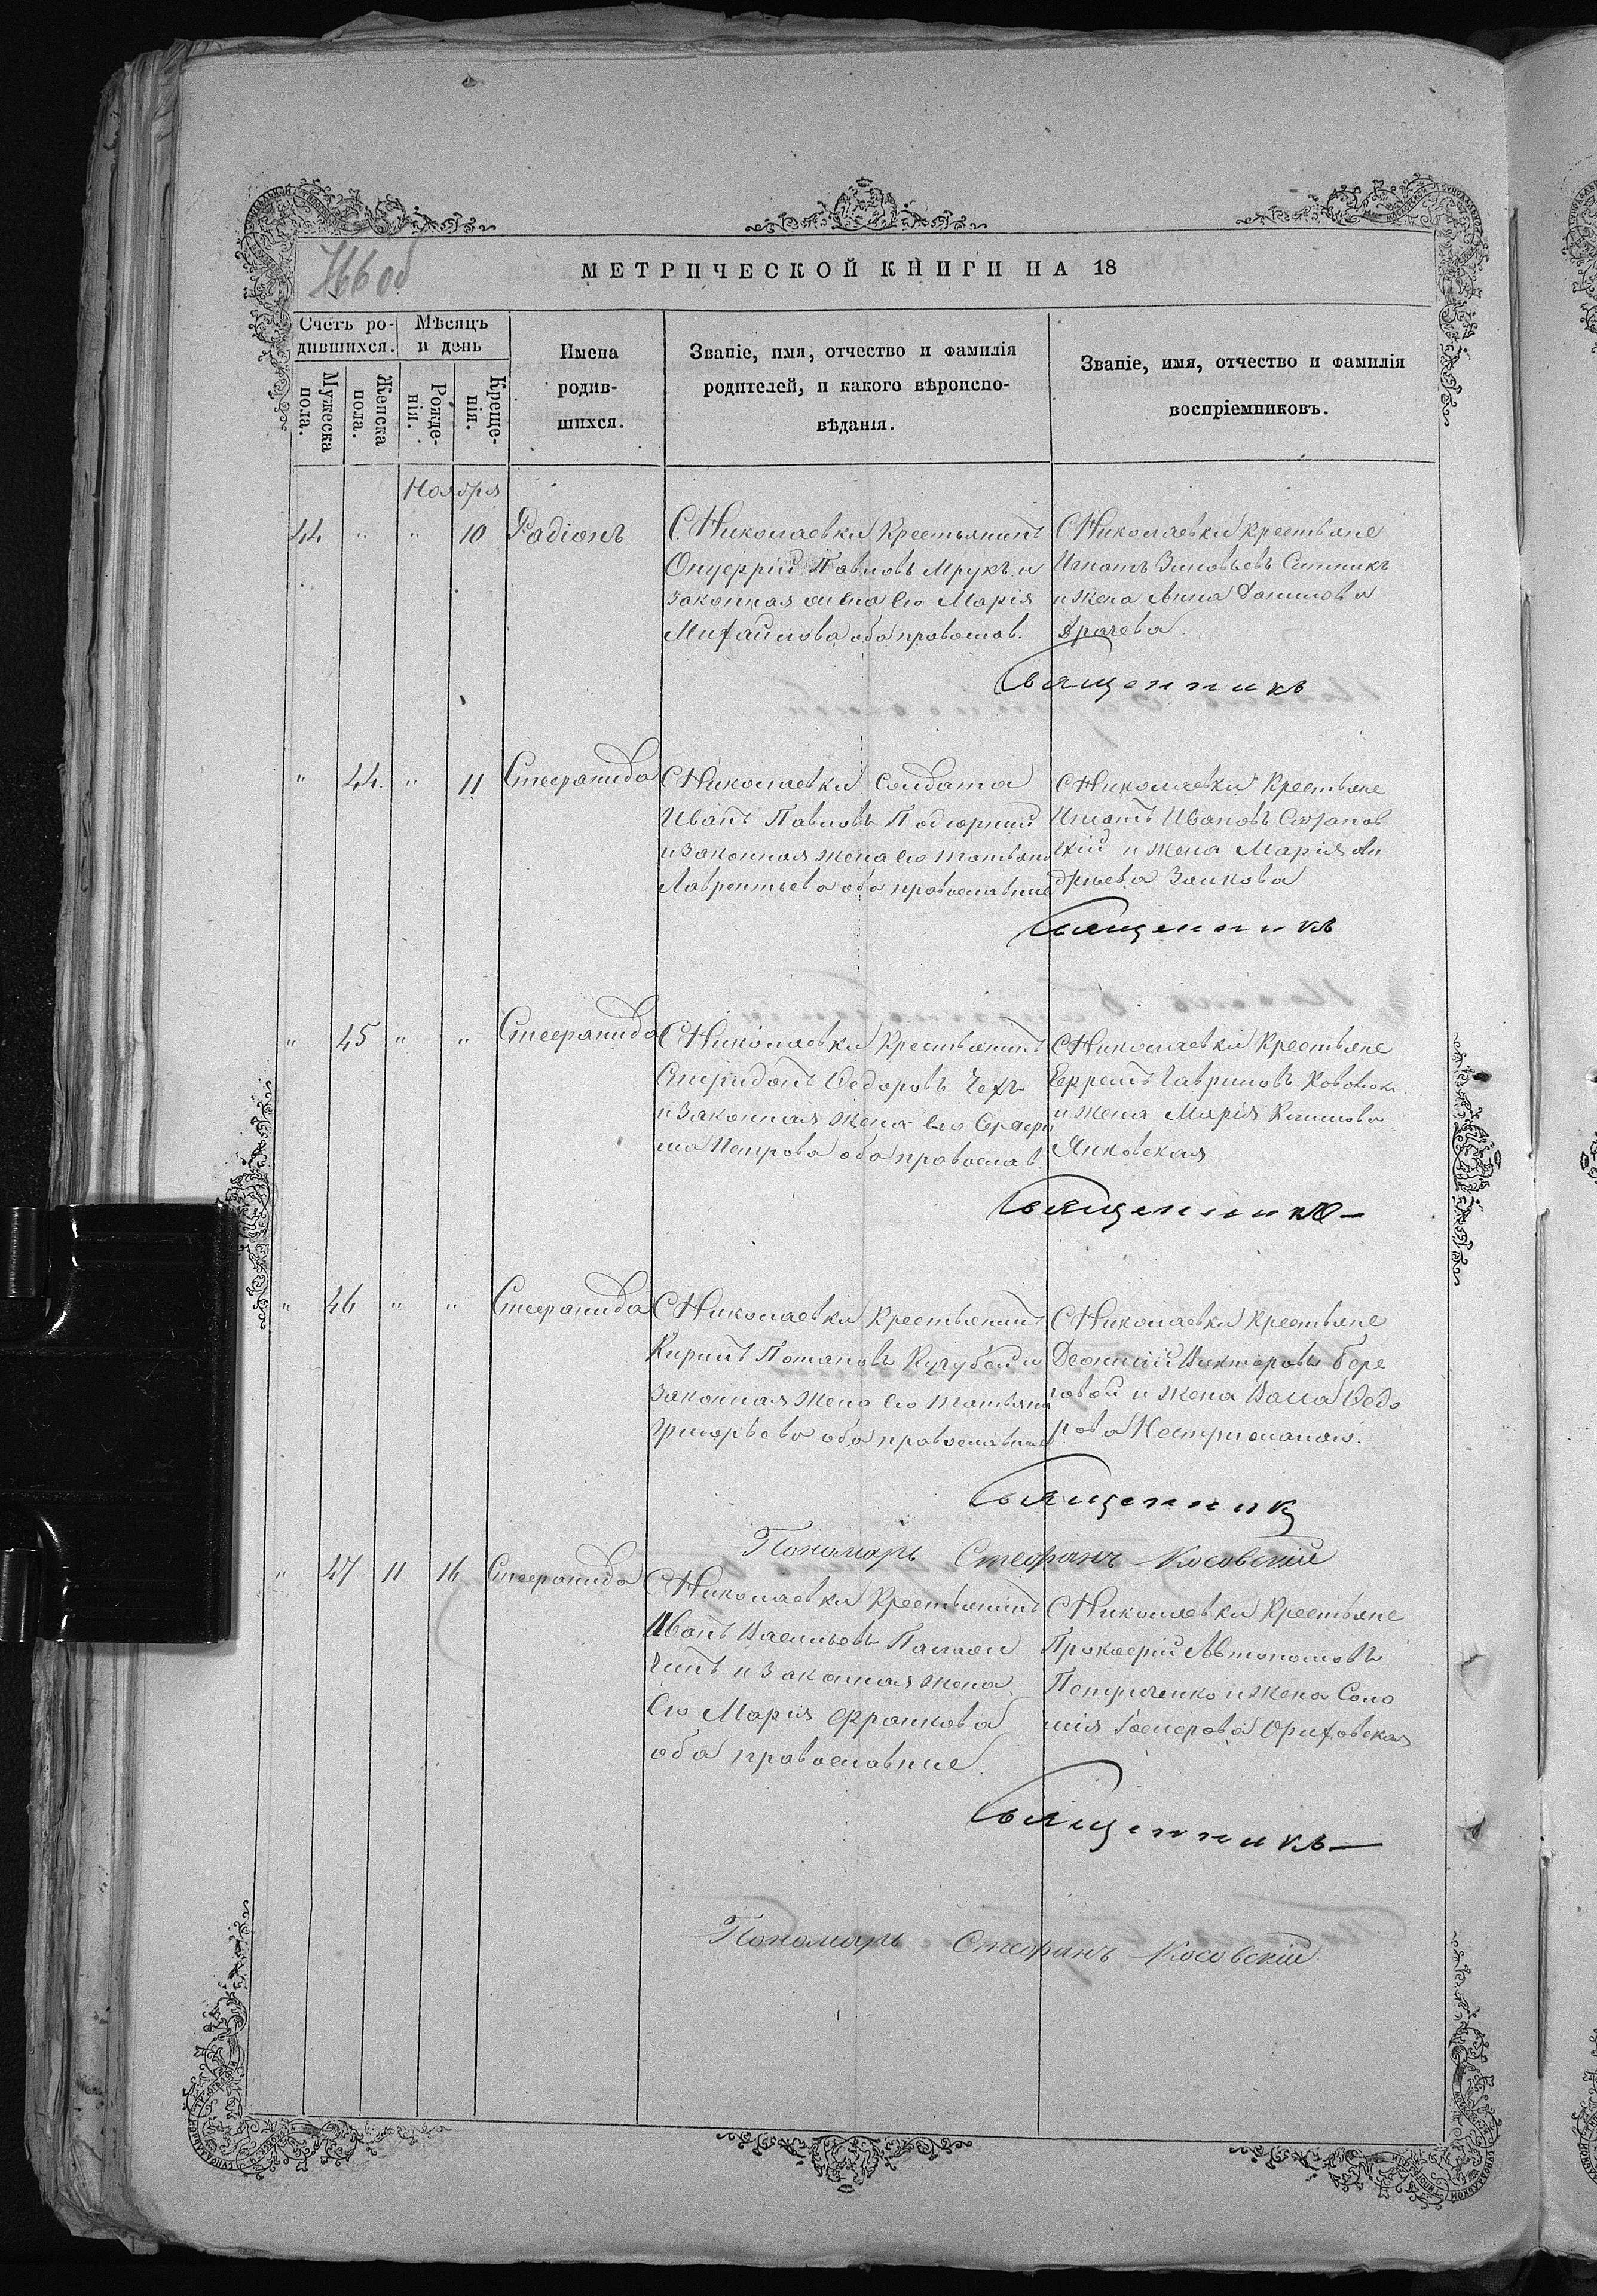 766 об
МЕТРИЧЕСКОЙ КНИГИ НА 18
Счетъ родившихся.
Мужеска пола.
Женска пола.
Мѣсяцъ и день
Рожденія.
Крещенія.
Имена родившихся.
Званіе, имя, отчество и фамилія
родителей, и какого вѣроиспо-
вѣданія.
Званіе, имя, отчество и фамилія
воспріемниковъ.
Ноября
44 " " 10 Радіонъ
С. Николаевки Крестьянинъ
Онуфрій Павловъ Мрукъ и
законная жена его Марія
Михайлова оба православ.
С Николаевки крестьяне
Игнатъ Зиновьевъ Ситникъ
и жена Анна Данилова
Священникъ
" 44. " 11 Стефанида
С Николаевки Солдата
Иванъ Павловъ Подгорний
и законная жена его Татьяна
Лаврентьева оба православние
С Николаевки Крестьяне
Игнатъ Ивановъ
цкій и жена Марія Ан
дреева Заикова
Священникъ
" 45 " " Стефанида
С Николаевки Крестьянинъ
Спиридонъ Федоровъ Чехъ
и законная жена его Серафи
ма Петрова оба православ.
С Николаевки Крестьяне
Ефремъ Гавриловъ
и жена Марія
Янковская
Священникъ
" 46 " " Стефанида
С Николаевки Крестьянинъ
Кирилъ Потаповъ Кучубей и
законная жена его Татьяна
Григорьева оба православние
С Николаевки Крестьяне
Леонтий Викторовъ Бере
говой и жена Васса Федо
рова
Священникъ
Пономарь Стефанъ Косовскій
" 47 11 16 Стефанида
С Николаевки Крестьянинъ
Иванъ Васильевъ Паламар
чукъ и законная жена
его Марія Франкова
оба православние.
С Николаевки Крестьяне
Прокофій Автономовъ
Петриченко и жена Соло
мія Ориховская
Священникъ
Пономарь Стефанъ Косовскій